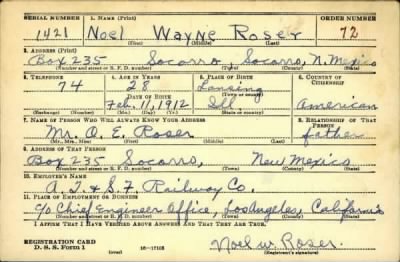 SERIAL NUMBER 1. NAME (Print) ORDER NUMBER
1421 Noel Wayne Roser 72
(First) (Middle) (Last)
2. ADDRESS (Print)
Box 235 Socorro Socorro, N. Mexico
(Number and street or R. F. D. number) (Town) (County) (State)
3. TELEPHONE 4. AGE IN YEARS 5. PLACE OF BIRTH 6. COUNTRY OF CITIZENSHIP
74 28 Lansing
(Town or county)
DATE OF BIRTH
Feb. 11, 1912 Ill American
(Exchange) (Number) (Mo.) (Day) (Yr.) (State or country)
7. NAME OF PERSON WHO WILL ALWAYS KNOW YOUR ADDRESS 8. RELATIONSHIP OF THAT PERSON
Mr. O. E. Roser father
(Mr., Mrs., Miss) (First) (Middle) (Last)
9. ADDRESS OF THAT PERSON
Box 235 Socorro, New Mexico
(Number and street or R. F. D. number) (Town) (County) (State)
10. EMPLOYER'S NAME
A. T. & S. F. Railway Co.
11. PLACE OF EMPLOYMENT OR BUSINESS
c/o Chief Engineer Office, Los Angeles, California
(Number and street or R. F. D. number) (Town) (County) (State)
I AFFIRM THAT I HAVE VERIFIED ABOVE ANSWERS AND THAT THEY ARE TRUE.
REGISTRATION CARD
D. S. S. Form 1 16—17105 Noel W. Roser
(Registrant's signature)